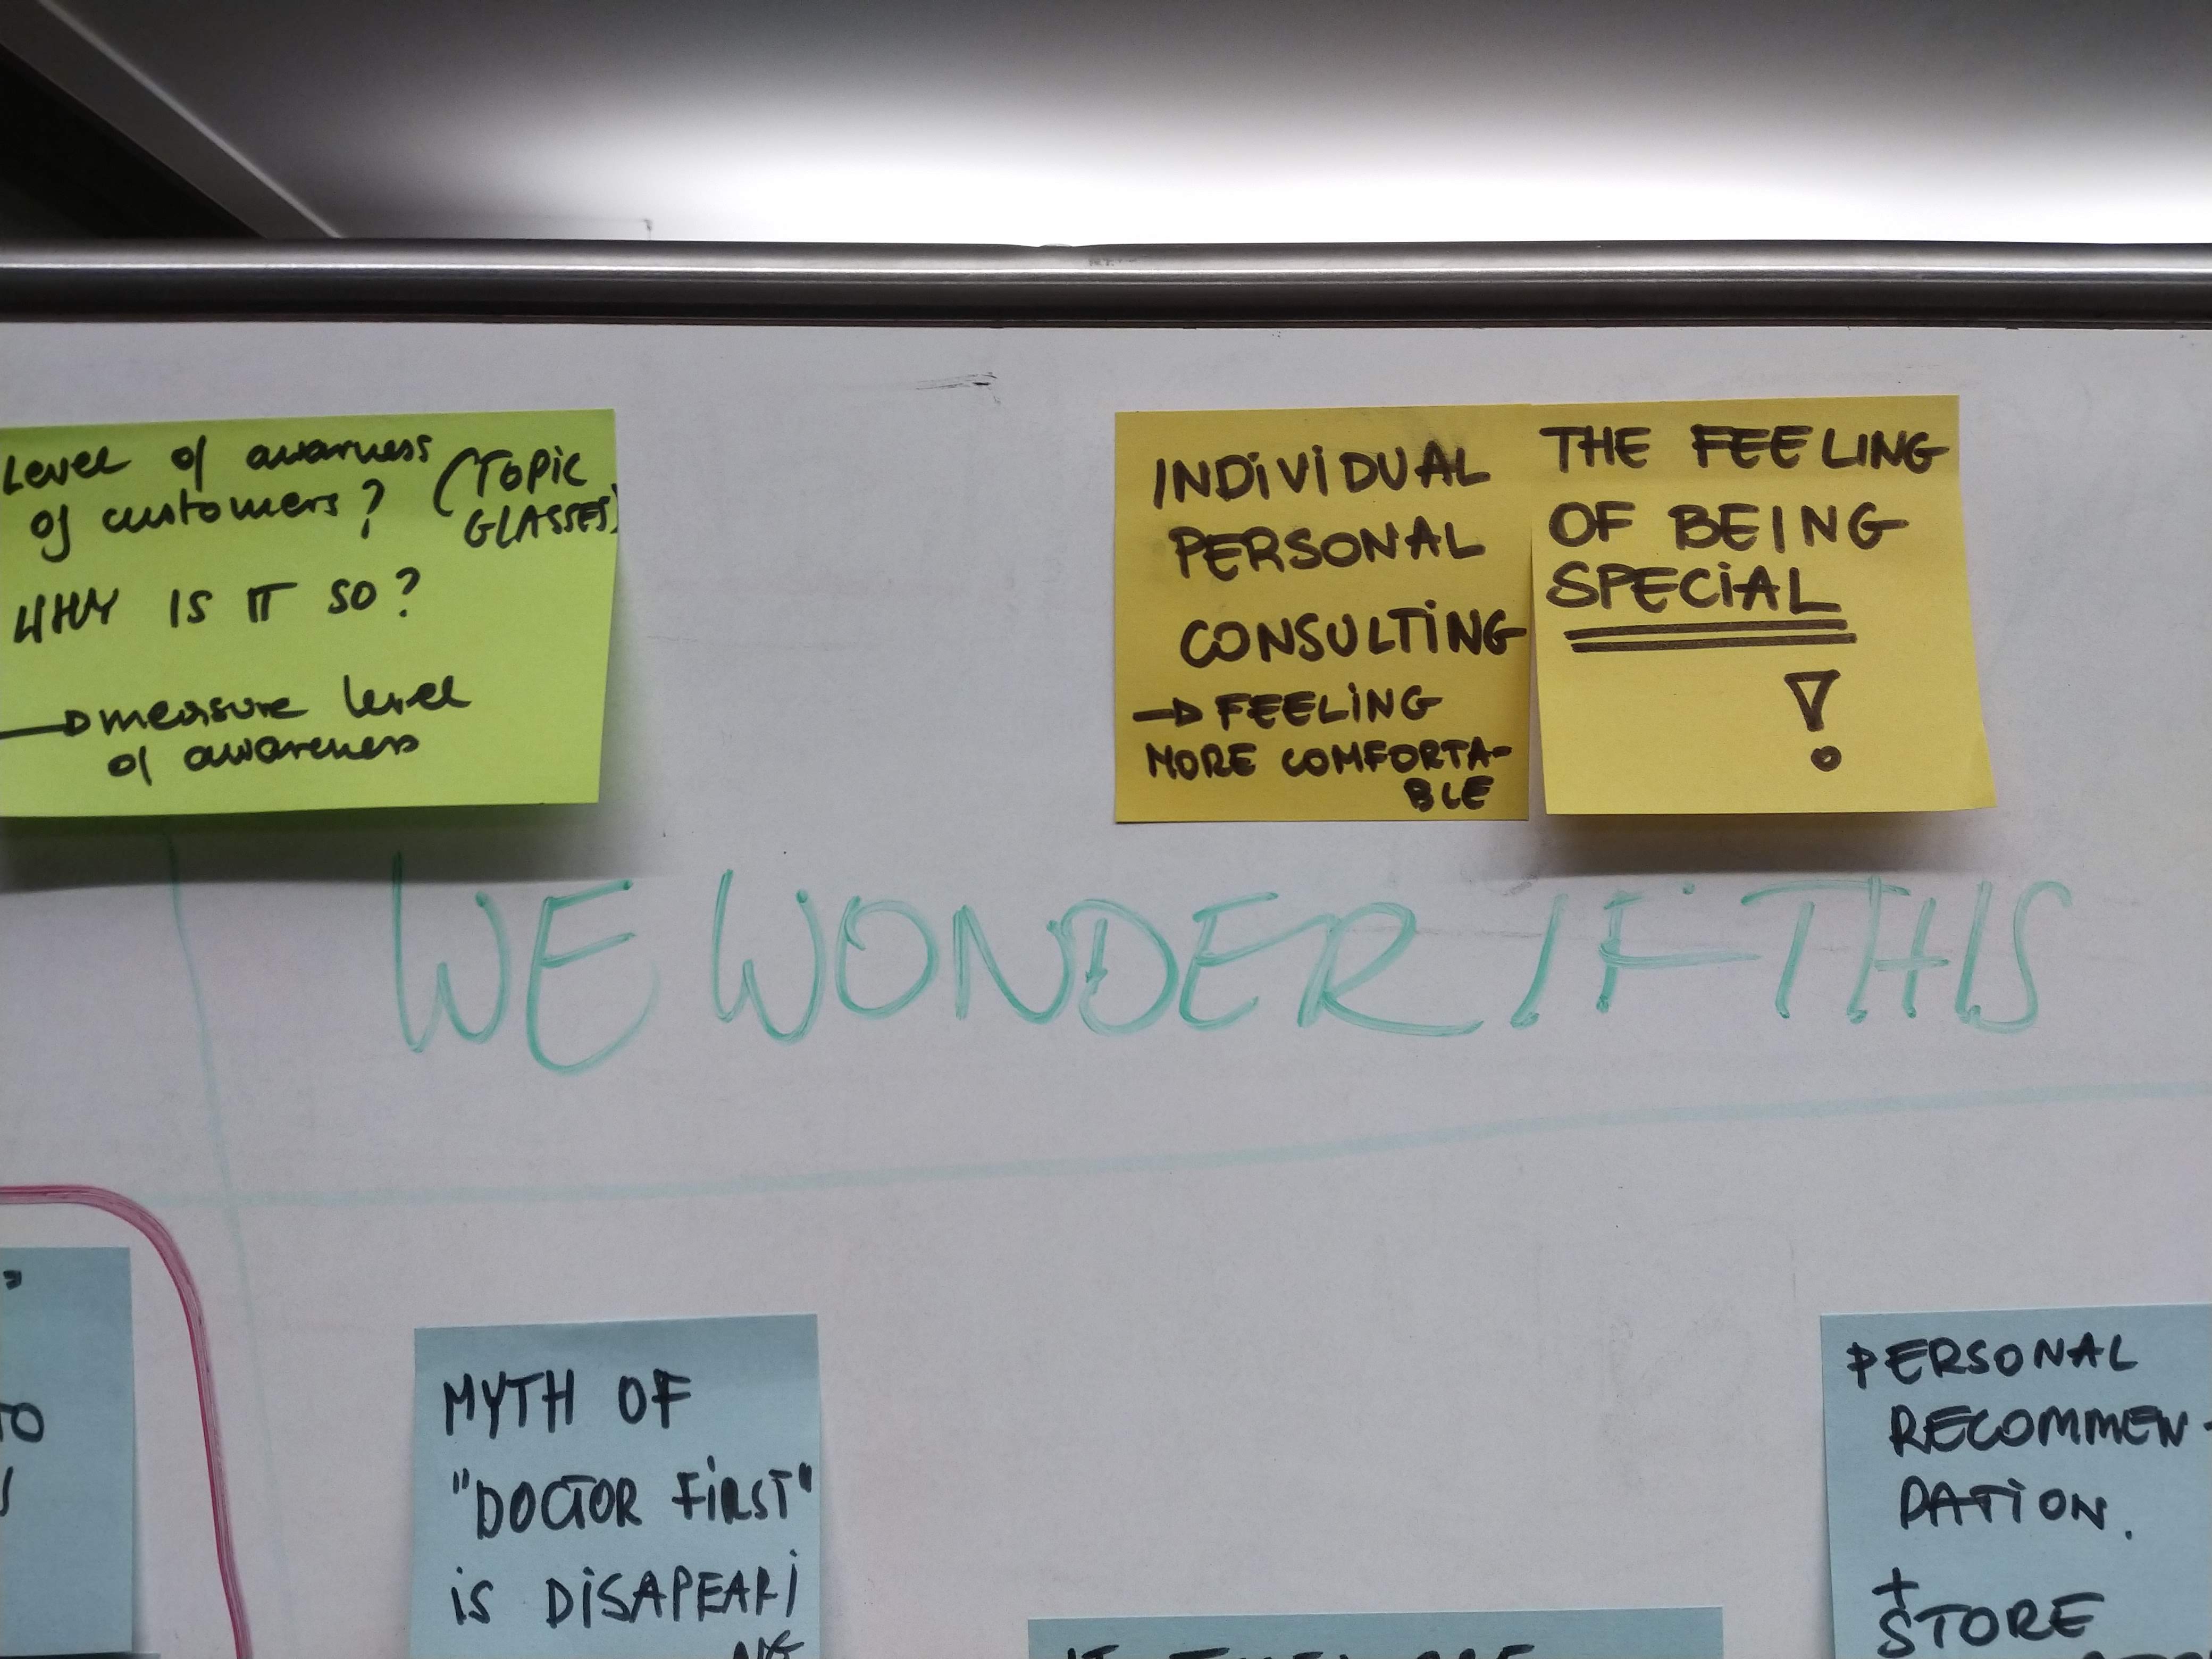 Level of awarness
of customers? (TOPIC
GLASSES)
WHY IS IT SO?
→ measure level
of awareness
INDIVIDUAL
PERSONAL
CONSULTING
→ FEELING
MORE COMFORTA-
BLE
THE FEELING
OF BEING
SPECIAL
!
WE WONDER IF THIS
TO
MYTH OF
"DOCTOR FIRST"
IS DISAPEARI
NG
PERSONAL
RECOMMEN-
DATION.
+
STORE